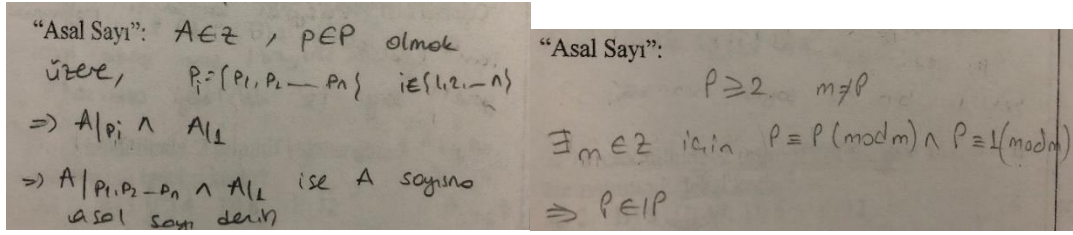 “Asal Sayı”: A∈Z, p∈P olmak
üzere, Pi={P1, P2 — Pn} i∈{1,2,—n}
=) A|Pi ∧ A|1
=) A|P1.P2—Pn ∧ A|1 ise A sayısına
asal sayı denir
“Asal Sayı”:
P≥2 m≠P
∃m∈Z için P≡P(mod m) ∧ P≡1(mod m)
⇒ P∈IP